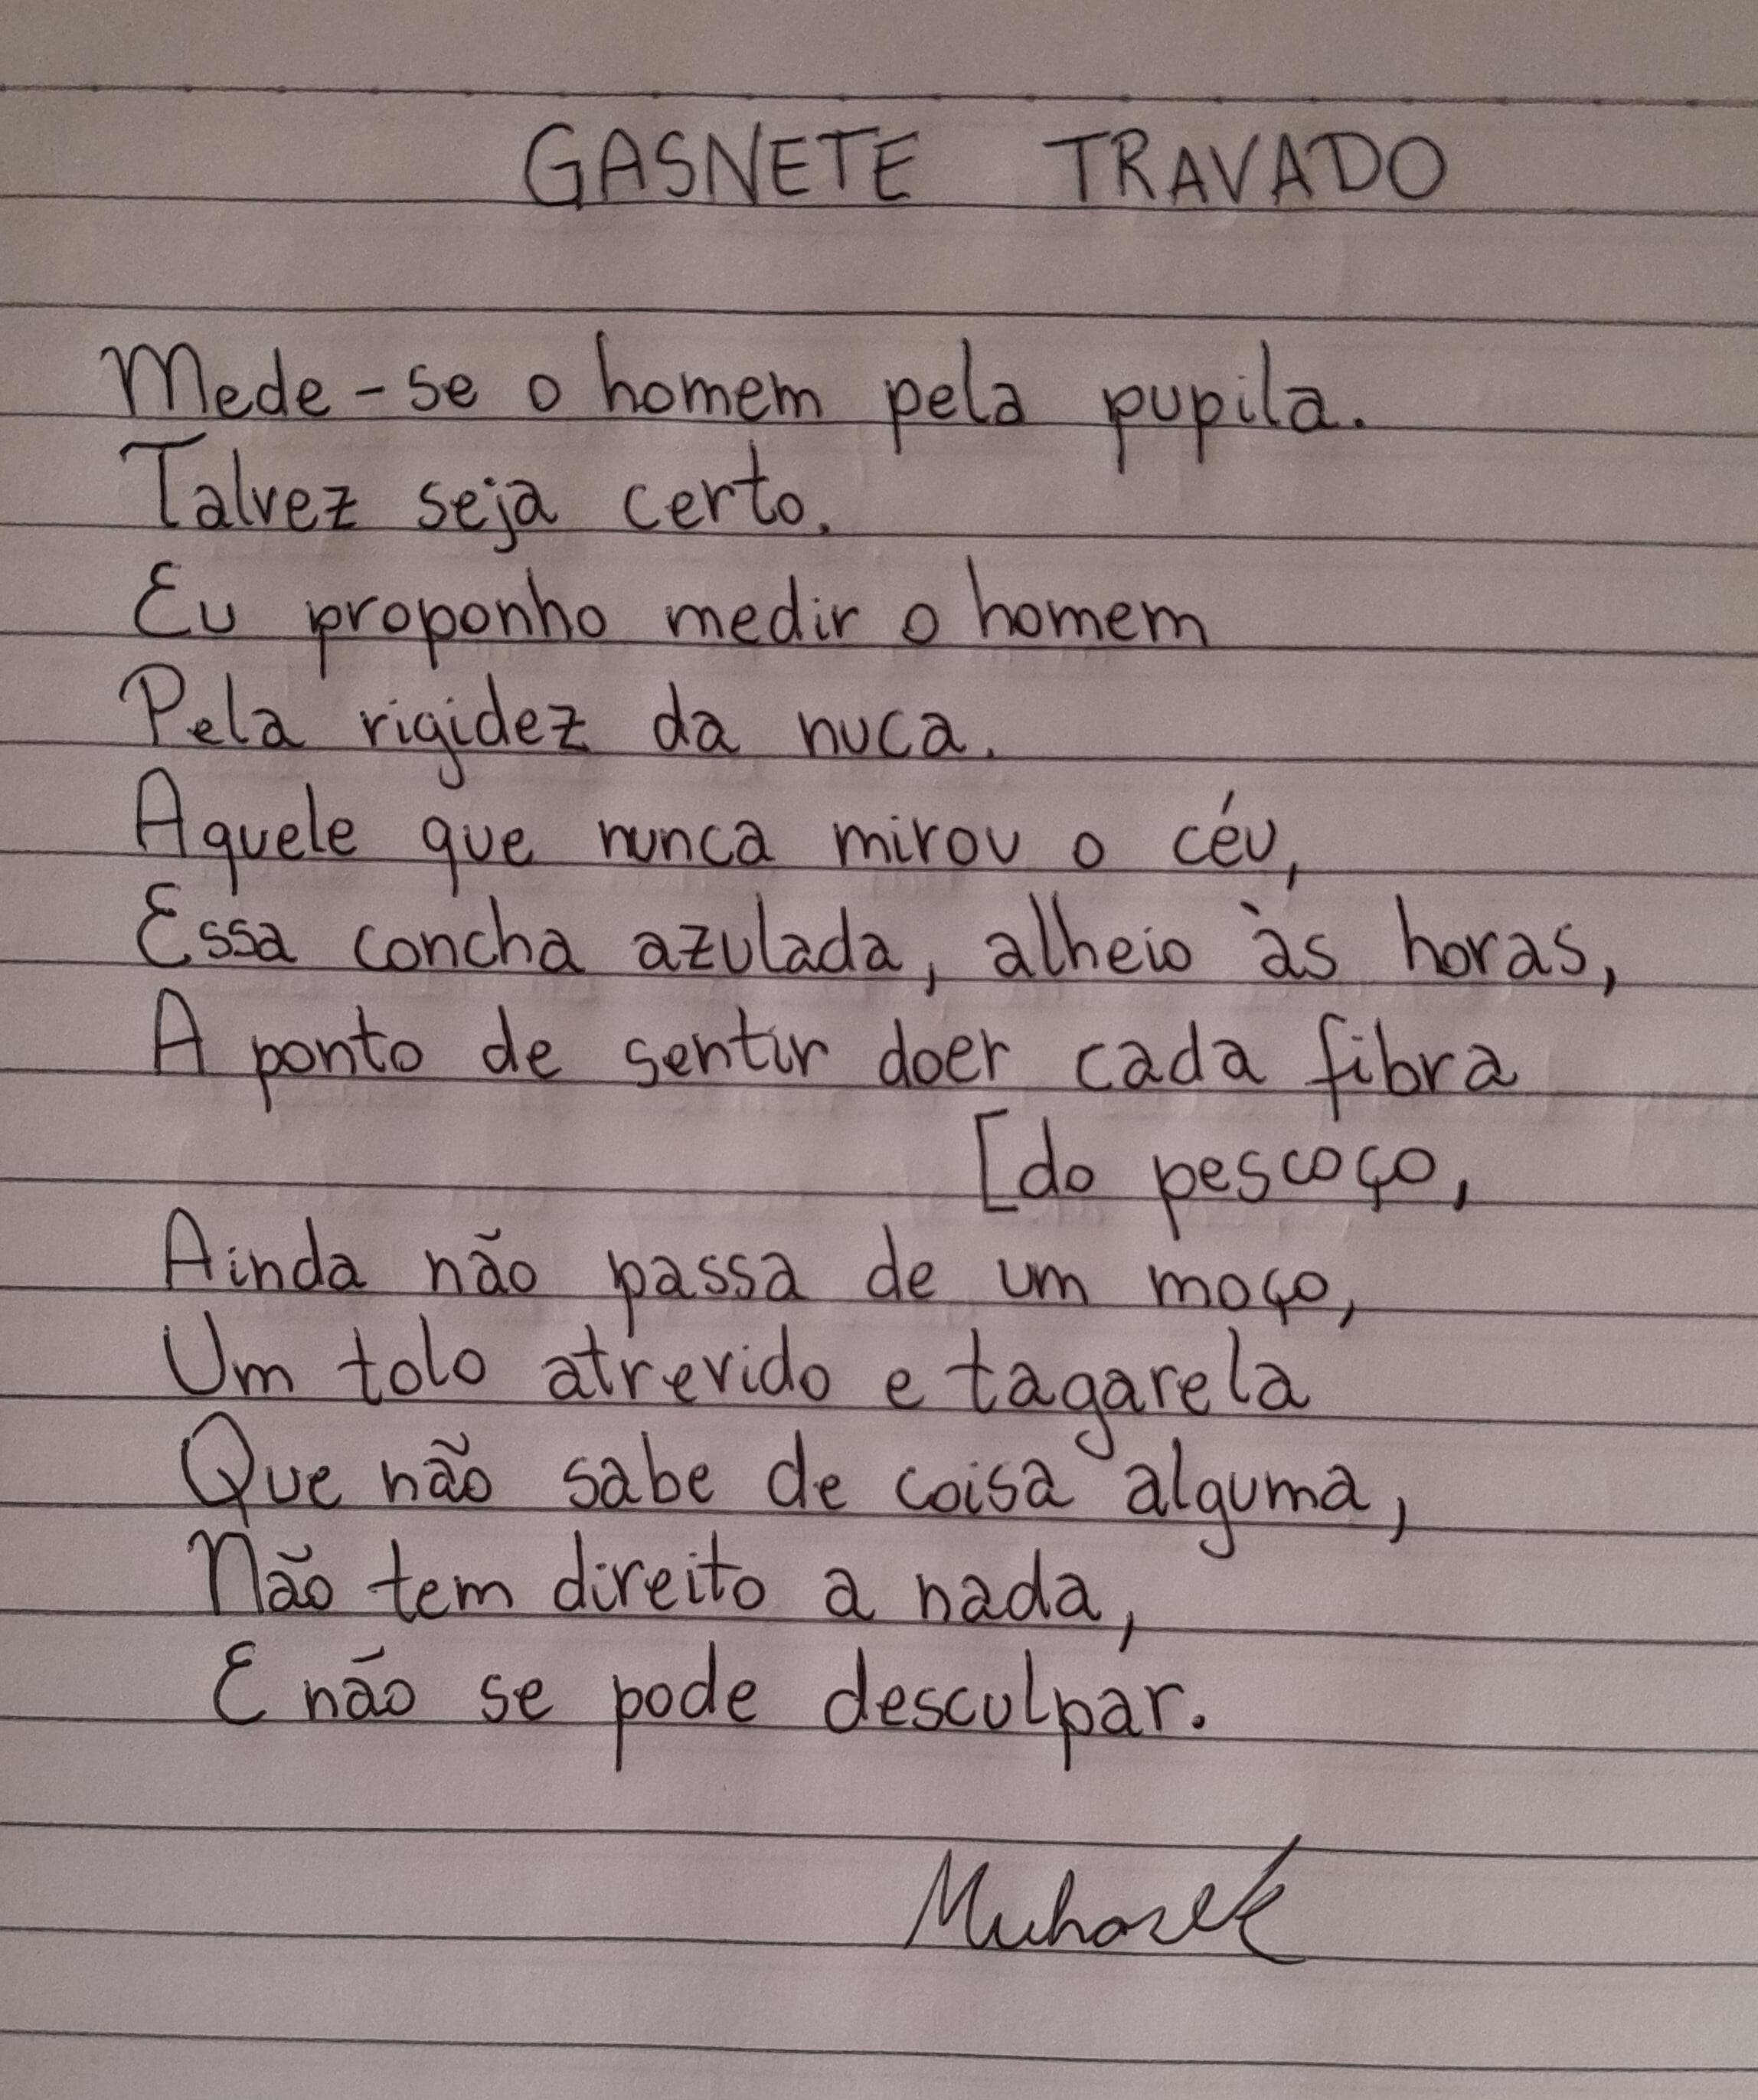 GASNETE TRAVADO
Mede-se o homem pela pupila.
Talvez seja certo.
Eu proponho medir o homem
Pela rigidez da nuca.
Aquele que nunca mirou o céu,
Essa concha azulada, alheio às horas,
A ponto de sentir doer cada fibra
[do pescoço,
Ainda não passa de um moço,
Um tolo atrevido e tagarela
Que não sabe de coisa alguma,
Não tem direito a nada,
E não se pode desculpar.